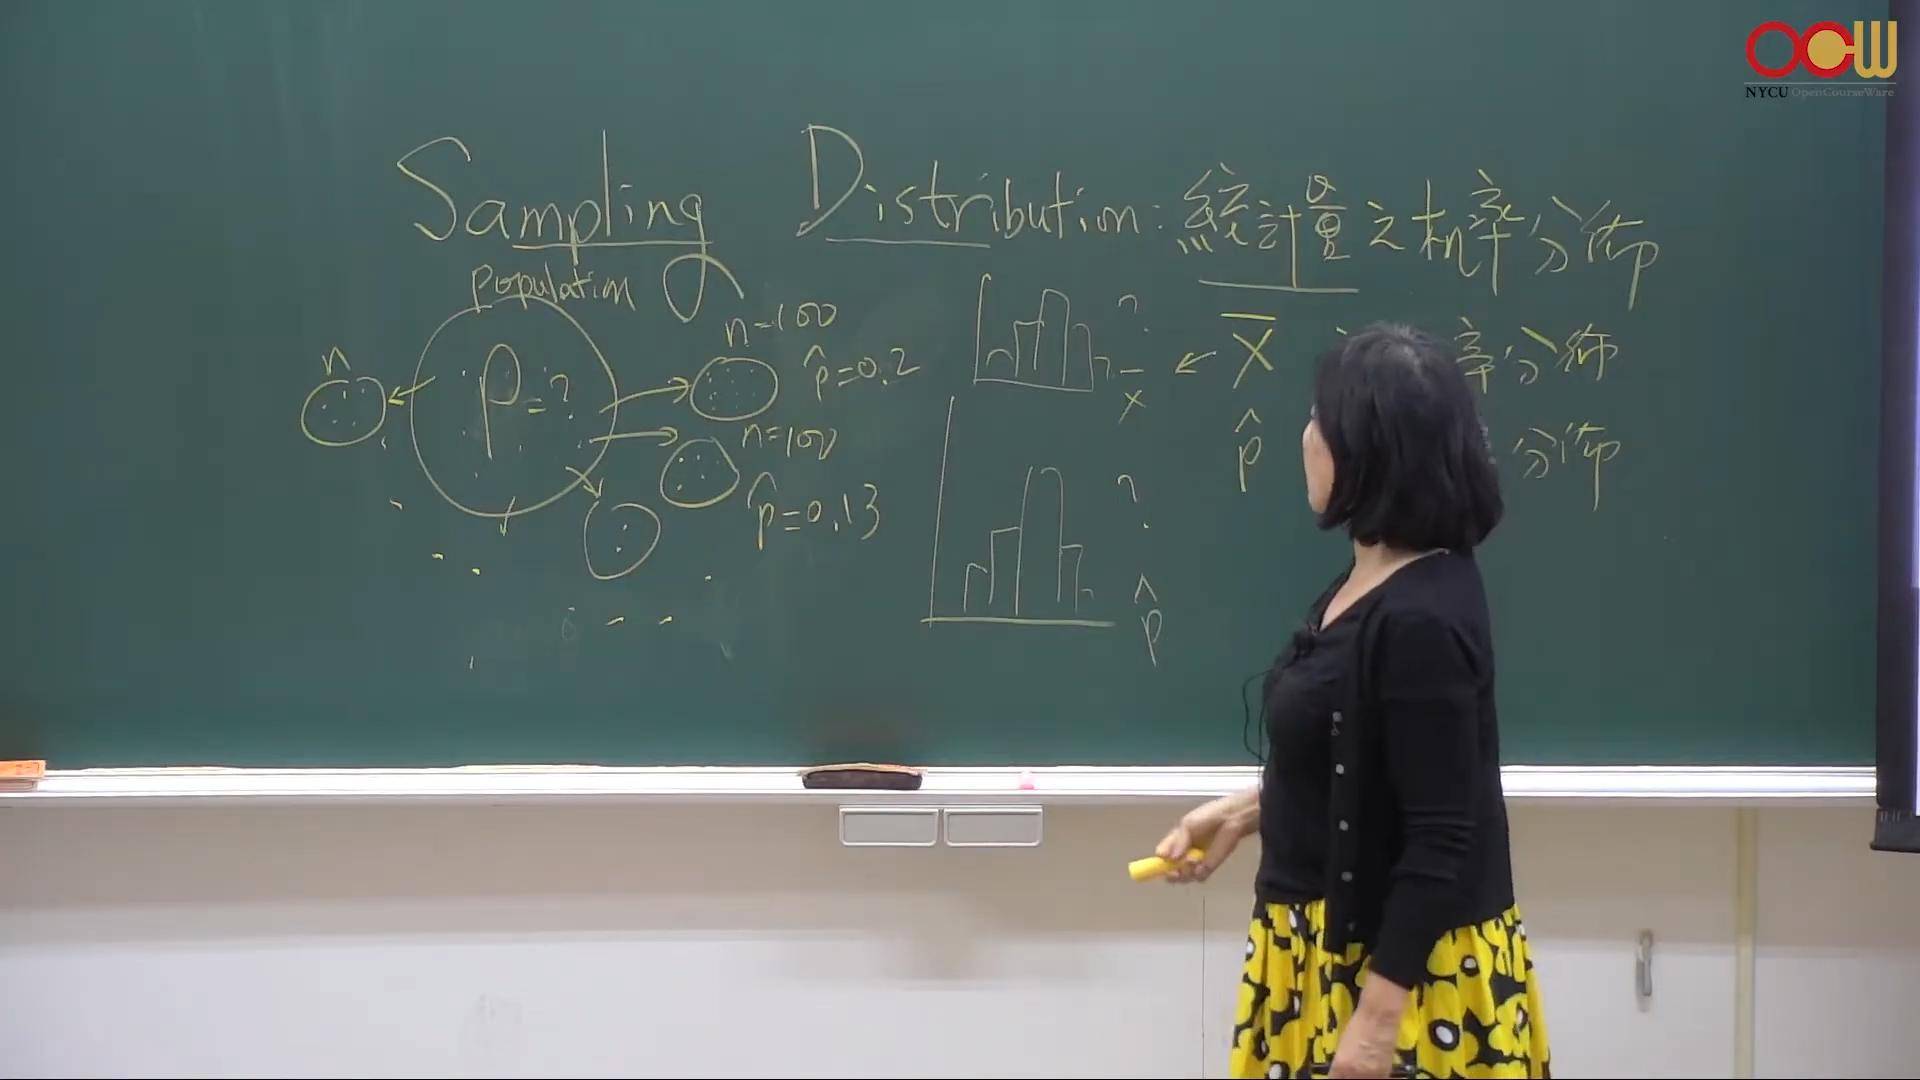 OCW
NYCU OpenCourseWare
Sampling Distribution: 統計量之機率分佈
population
n=100
n
p=?
p̂=0.2
n=100
p̂=0.13
?
x̄
?
p̂
X̄ 率分佈
p̂ 分佈